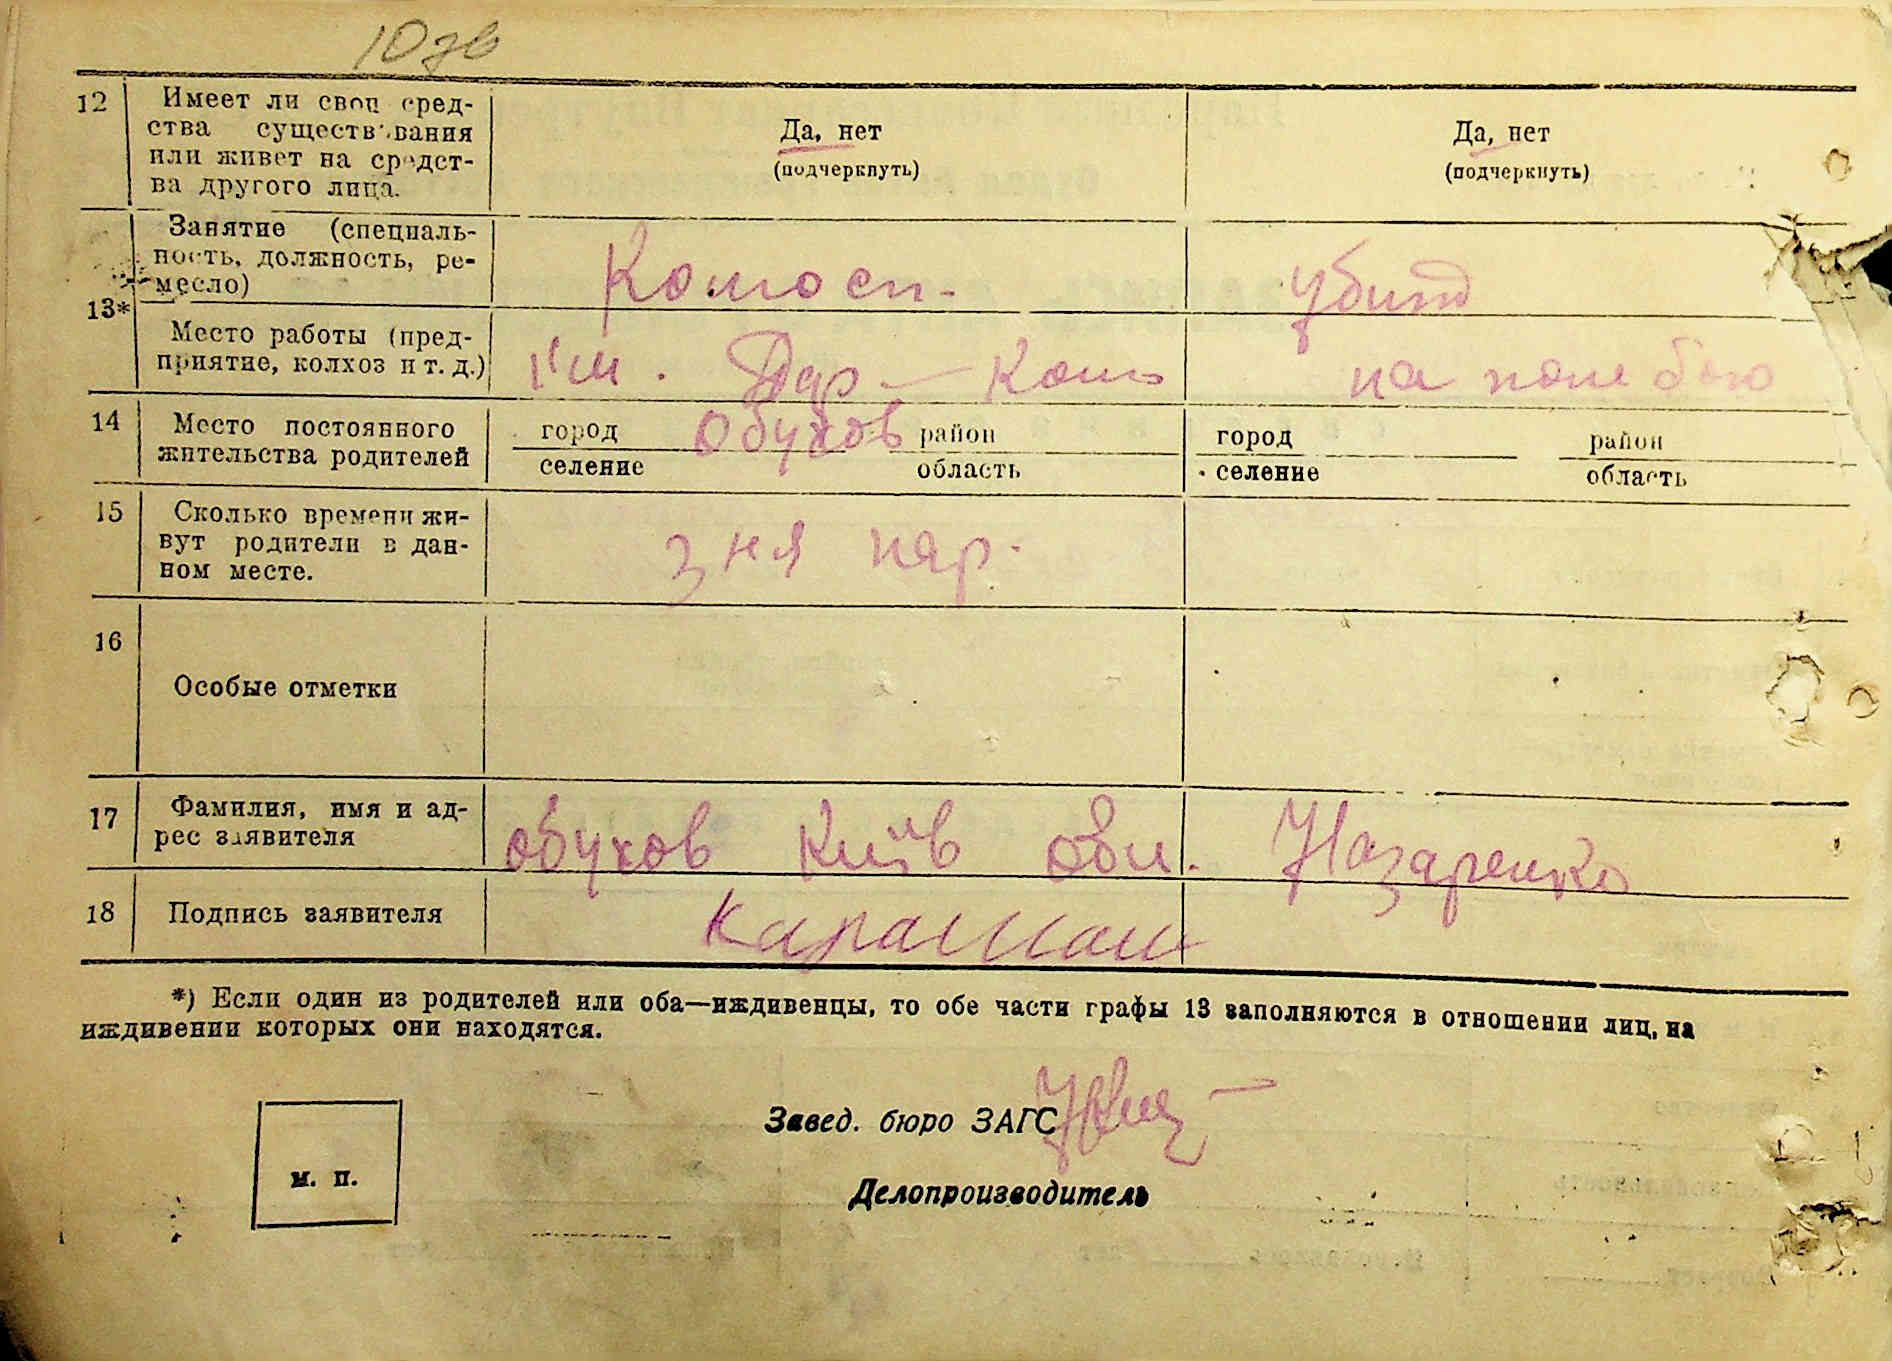 10зв
12
Имеет ли свои сред-
ства существования
или живет на средст-
ва другого лица.
Да, нет
(подчеркнуть)
Да, нет
(подчеркнуть)
13*
Занятие (специаль-
ность, должность, ре-
месло)
Колгосп.
убитд
Место работы (пред-
приятие, колхоз и т. д.)
на поле бою
14
Место постоянного
жительства родителей
город Обухов район
селение область
город район
селение область
15
Сколько времени жи-
вут родители в дан-
ном месте.
з ня нар.
16
Особые отметки
17
Фамилия, имя и ад-
рес заявителя
Обухов Київ обл. Назаренко
18
Подпись заявителя
*) Если один из родителей или оба—иждивенцы, то обе части графы 13 заполняются в отношении лиц, на
иждивении которых они находятся.
Завед. бюро ЗАГС
м. п.
Делопроизводитель